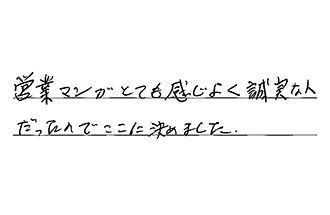 営業マンがとても感じよく誠実な人
だったのでここに決めました.